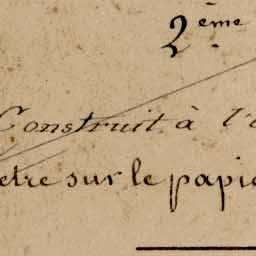 2.ème
Construit à l'
etre sur le papie